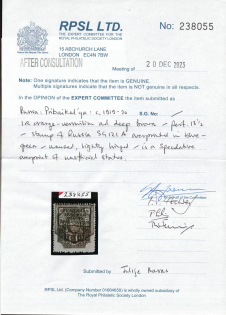 RPSL LTD.
THE EXPERT COMMITTEE OF THE
ROYAL PHILATELIC SOCIETY LONDON
No: 238055
15 ABCHURCH LANE
LONDON EC4N 7BW
AFTER CONSULTATION
Meeting of 20 DEC 2023
Note: One signature indicates that the item is GENUINE.
Multiple signatures indicate that the item is NOT genuine in all respects.
In the OPINION of the EXPERT COMMITTEE the item submitted as
1R orange-vermilion and deep brown - Perf. 13½
- stamp of Russia SG 121A overprinted in blue-
green - unused, lightly hinged - is a speculative
overprint of unofficial status.
238055
Submitted by
RPSL Ltd. (Company Registration Number 01664659) is wholly owned subsidiary of
The Royal Philatelic Society London